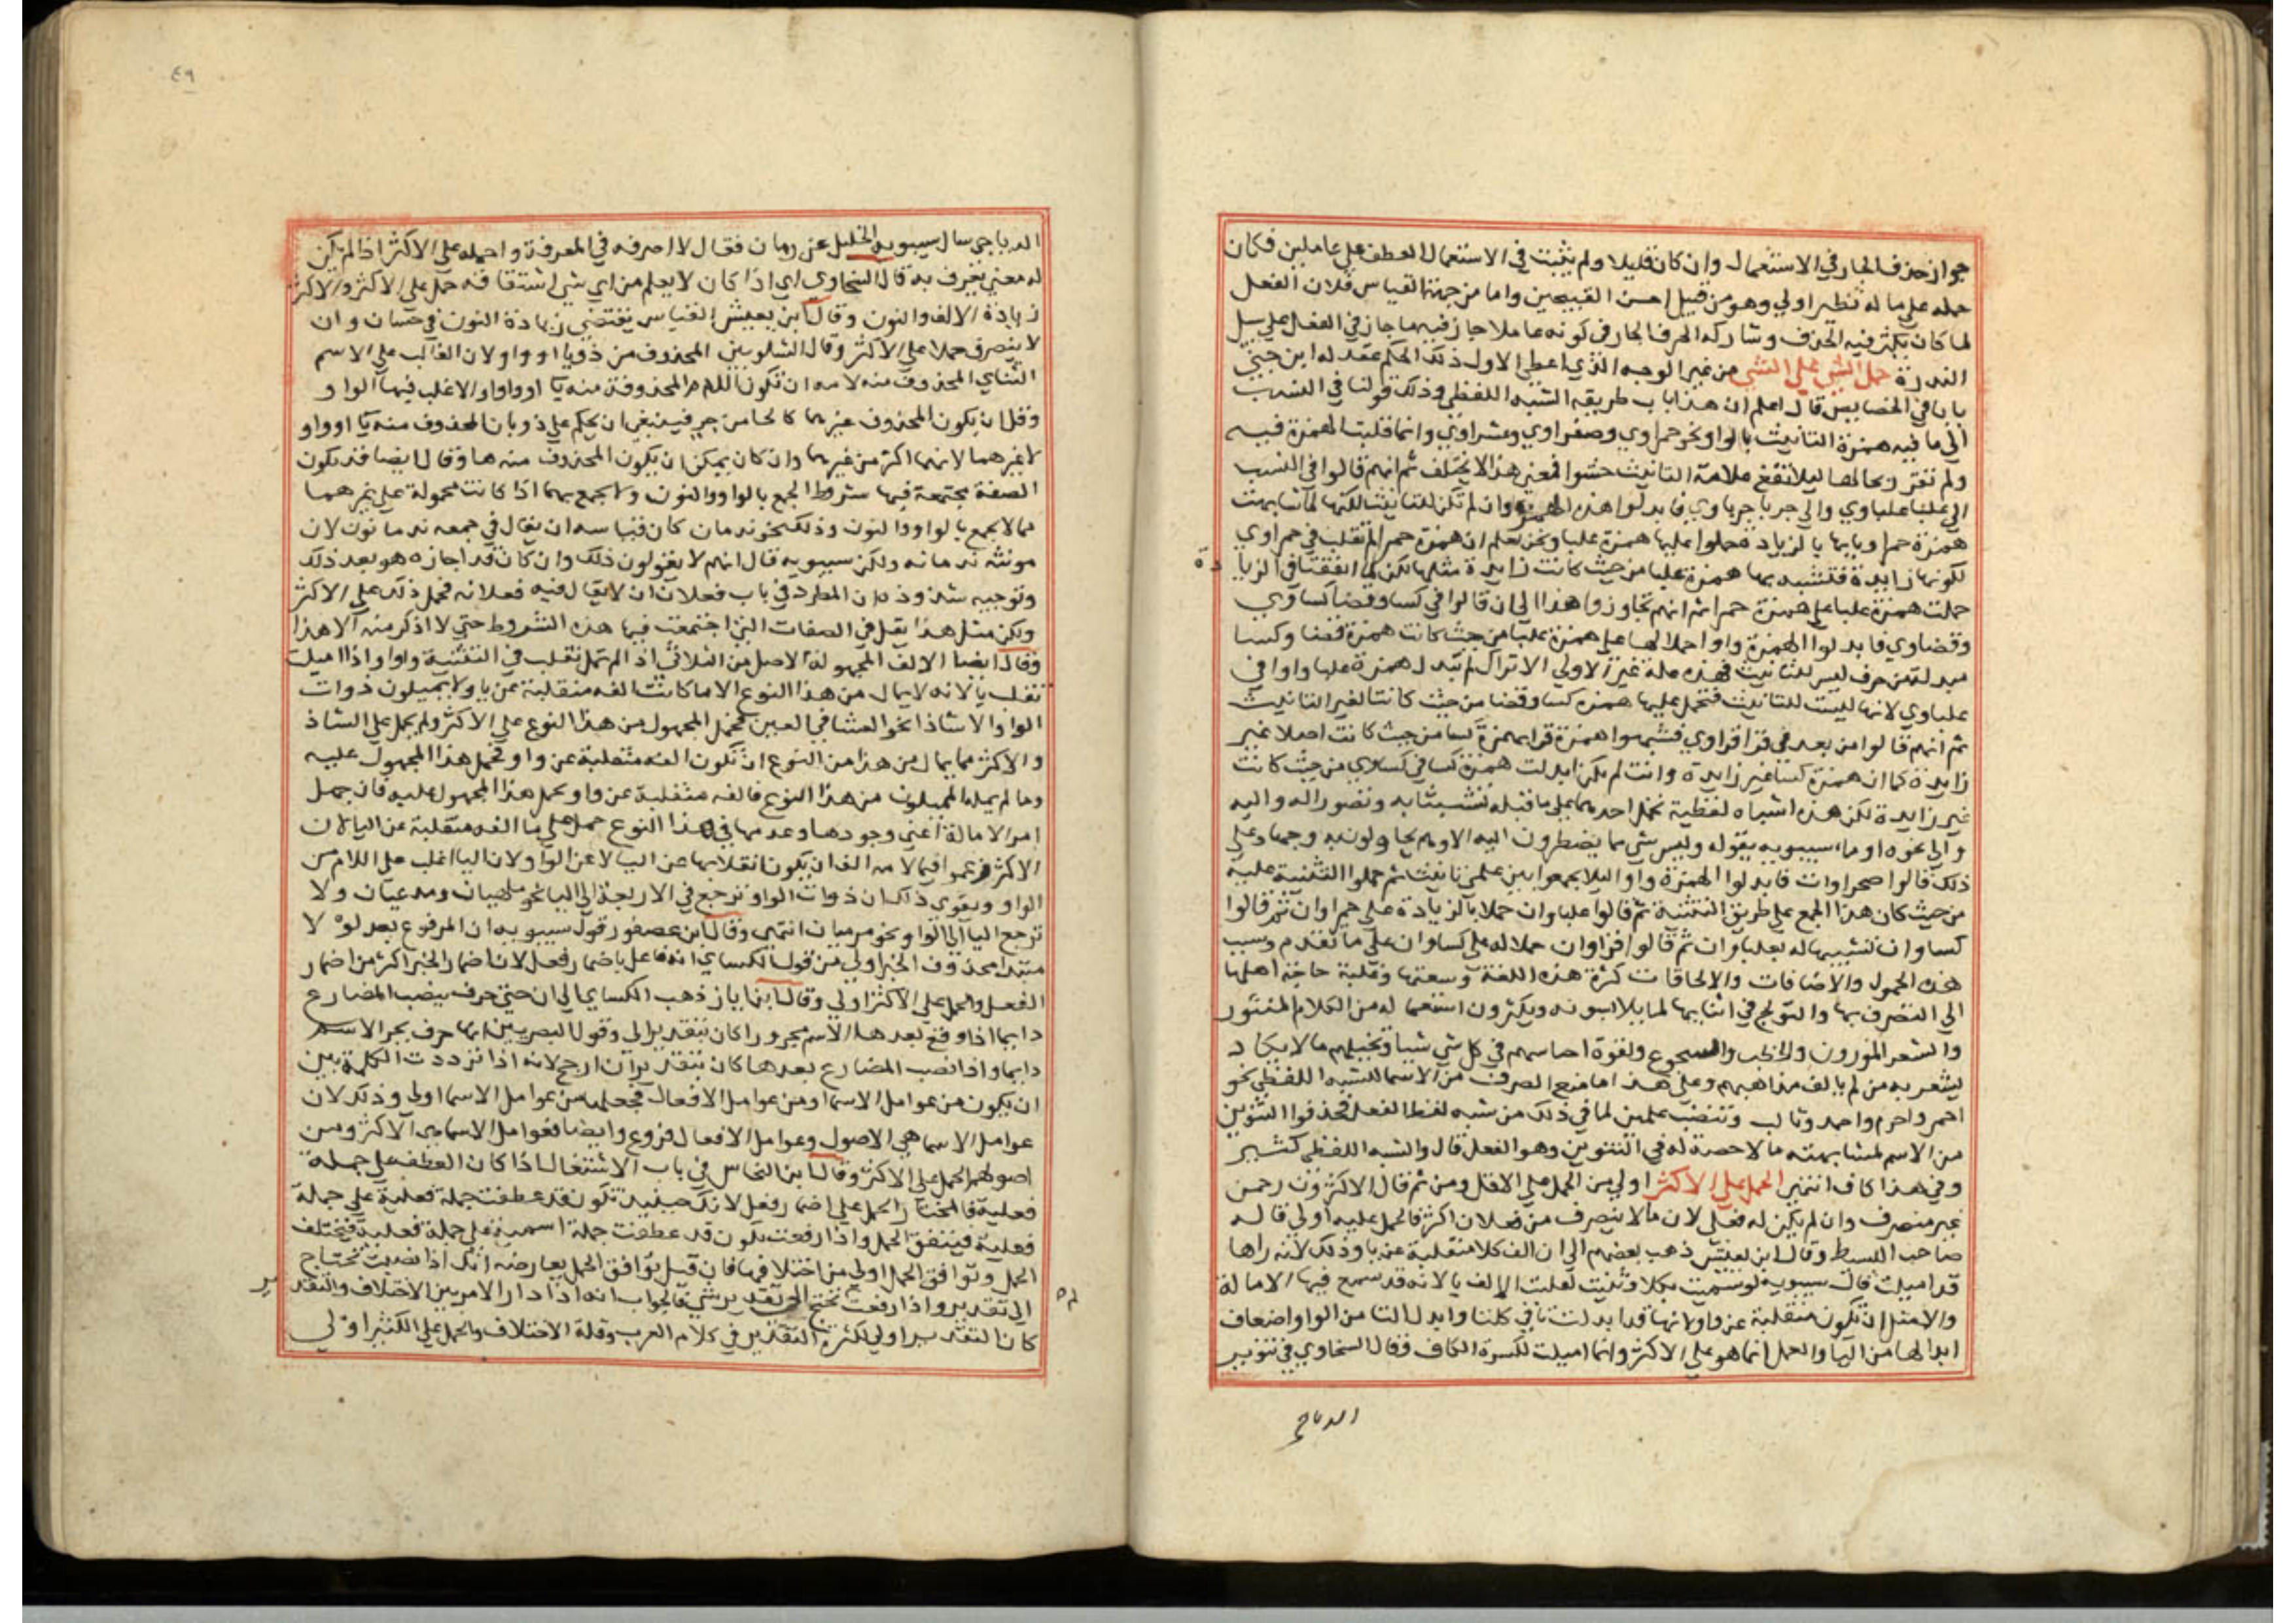 جواز حذف الجار في الاستعمال وان كان قليلا ولم يثبت في الاستعمال العطف على عاملين فكان
حمله على ما له نظير اولي وهو من قبيل احسن القبيحين واما من جهة القياس فلان الفعل
لما كان يكثر فيه الحذف وشاركه الحرف الجار في كونه عاملا جاز فيه ما جاز في الفعل على سبيل
الندرة حمل الشي على الشي من غير الوجه الذي اعطى الاول ذلك الحكم عقد له ابن جني
بابا في الخصايص قال اعلم ان هذا باب طريقه الشبه اللفظي وذلك قولنا في النسب
الى ما فيه همزة التانيث بالواو نحو حمراوي وصفراوي وعشراوي وانما قلبت الهمزة فيه
ولم تقر بحالها ليلا تقع علامة التانيث حشوا فمعنى هذا لا يختلف ثم انهم قالوا في النسب
الى علبا علباوي والى حربا حرباوي فابدلوا هذه الهمزة وان لم تكن للتانيث لكنها لما شابهت
همزة حمرا وبابها بالزيادة حملوا عليها همزة علبا ونحن نعلم ان همزة حمرا لم تقلب في حمراوي
لكونها زايدة فتشبه بها همزة علبا من حيث كانت زايدة مثلها لكن لما اتفقتا في الزيا
دة
حملت همزة علبا على همزة حمرا ثم انهم تجاوزوا هذا الى ان قالوا في كسا وقضا كساوي
وقضاوي فابدلوا الهمزة واوا حملا لها على همزة علبا من حيث كانت همزة قضا وكسا
مبدلة من حرف ليس للتانيث فهذه علة غير الاولي الا تراك لم تبدل همزة علبا واوا في
علباوي لانها ليست للتانيث فتحمل عليها همزة كسا وقضا من حيث كانتا لغير التانيث
ثم انهم قالوا من بعد في قرا قراوي فشبهوا همزة قرا بهمزة كسا من حيث كانت اصلا غير
زايدة كما ان همزة كسا غير زايدة وانت لم تكن ابدلت همزة كسا في كساوي من حيث كانت
غير زايدة لكن هذه اشباه لفظية تحمل احدها على ما قبله تشبثا به وتصورا له واليه
والى نحوه اوما سيبويه بقوله وليس شي مما يضطرون اليه الا وهم يحاولون به وجها وعلى
ذلك قالوا صحراوات فابدلوا الهمزة واوا ليلا يجمعوا بين علمي تانيث ثم حملوا التثنية عليه
من حيث كان هذا الجمع على طريق التثنية ثم قالوا علباوان حملا بالزيادة على حمراوان ثم قالوا
كساوان تشبيها له بعلباوان ثم قالوا قراوان حملا له على كساوان على ما تقدم وسبب
هذه الحمول والاضافات والالحاقات كثرة هذه اللغة وسعتها وغلبة حاجة اهلها
الى التصرف بها والتولج في اثنايها لما يلابسونه ويكثرون استعماله من الكلام المنثور
والشعر الموزون والخطب والسجوع ولقوة احساسهم في كل شي شيا وتخيلهم ما لا يكاد
يشعر به من لم يالف مذاهبهم وعلى هذا ما منع الصرف من الاسما للشبه اللفظي نحو
احمر واحرم واحمد وتالب وتنضب علمين لما في ذلك من شبه لفظ الفعل فحذفوا التنوين
من الاسم لمشابهته ما لا حصة له في التنوين وهو الفعل قال والشبه اللفظي كثير
وفي هذا كاف انتهى الحمل على الاكثر اولي من الحمل على الاقل ومن ثم قال الاكثرون رحمن
غير منصرف وان لم يكن له فعلى لان ما لا ينصرف من فعلان اكثر فالحمل عليه اولي قاله
صاحب البسيط وقال ابن يعيش ذهب بعضهم الى ان الف كلا منقلبة عن يا وذلك لانه راها
قد اميلت قال سيبويه لو سميت بكلا وثنيت لقلبت الالف يا لانه قد سمع فيها الامالة
والامثل ان تكون منقلبة عن واو لانها قد ابدلت تا في كلتا وابدال التا من الواو اضعاف
ابدالها من اليا والحمل انما هو على الاكثر وانما اميلت لكسرة الكاف وقال السخاوي في تنوير
الدياجي
٤٩
الدياجي سال سيبويه الخليل عن رمان فقال لا اصرفه في المعرفة واحمله على الاكثر اذا لم يكن
له معنى يعرف به قال السخاوي اي اذا كان لا يعلم من اي شي اشتقاقه حمل على الاكثر والاكثر
زيادة الالف والنون وقال ابن يعيش القياس يقتضي زيادة النون في حسان وان
لا ينصرف حملا على الاكثر وقال الشلوبين المحذوف من ذو يا او واو لان الغالب على الاسم
الثنائي المحذوف منه لامه ان تكون اللام المحذوفة منه يا او واوا والاغلب فيها الواو
وقل ان يكون المحذوف غيرهما كالحا من حر فينبغي ان يحكم على ذو بان المحذوف منه يا او واو
لا غيرهما لانهما اكثر من غيرهما وان كان يمكن ان يكون المحذوف منه ها وقال ايضا قد يكون
الصفة مجتمعة فيها شروط الجمع بالواو والنون ولا يجمع بهما اذا كانت محمولة على غيرهما
مما لا يجمع بالواو والنون وذلك نحو ندمان كان قياسه ان يقال في جمعه ندمانون لان
مونثه ندمانه ولكن سيبويه قال انهم لا يقولون ذلك وان كان قد اجازه هو بعد ذلك
وتوجيه شذوذه ان المطرد في باب فعلان ان لا يقال فيه فعلانه فحمل ذلك على الاكثر
ولكن مثل هذا يقل في الصفات التي اجتمعت فيها هذه الشروط حتى لا اذكر منه الا هذا
وقال ايضا الالف المجهولة الاصل من الثلاثي اذا لم تمل تقلب في التثنية واوا واذا اميلت
تقلب يا لانه لا يمال من هذا النوع الا ما كانت الفه منقلبة عن يا ولا يميلون ذوات
الواو الا شاذا نحو العشا في العين فحمل المجهول من هذا النوع على الاكثر ولم يحمل على الشاذ
والاكثر مما يمال من هذا من النوع ان تكون الفه منقلبة عن واو فحمل هذا المجهول عليه
وما لم يمله المميلون من هذا النوع فالفه منقلبة عن واو يحمل هذا المجهول عليه فان جهل
امر الامالة اعني وجودها وعدمها في هذا النوع حمل على ما الفه منقلبة عن اليا لان
الاكثر فيما لامه الف ان يكون انقلابها عن اليا لا عن الواو لان اليا اغلب على اللام من
الواو ويقوي ذلك ان ذوات الواو ترجع في الاربعة الى اليا نحو ملهيان ومدعيان ولا
ترجع اليا الى الواو نحو مرميان انتهى وقال ابن عصفور قول سيبويه ان المرفوع بعد لو لا
مبتدا محذوف الخبر اولي من قول الكسائي انه فاعل باضمار فعل لان اضمار الخبر اكثر من اضمار
الفعل والحمل على الاكثر اولي وقال ابن اياز ذهب الكسائي الى ان حتى حرف ينصب المضارع
دايما اذا وقع بعدها الاسم مجرورا كان بتقدير الى وقول البصريين انها حرف يجر الاسم
دايما واذا نصب المضارع بعدها كان بتقدير ان ارجح لانه اذا ترددت الكلمة بين
ان يكون من عوامل الاسما ومن عوامل الافعال فجعلها من عوامل الاسما اولي وذلك لان
عوامل الاسما هي الاصول وعوامل الافعال فروع وايضا فعوامل الاسما هي الاكثر ومن
اصولهم الحمل على الاكثر وقال ابن النحاس في باب الاشتغال اذا كان العطف على جملة
فعلية فالمختار الحمل على اضمار فعل لانك حينئذ تكون قد عطفت جملة فعلية على جملة
فعلية فيتفق الجمل واذا رفعت تكون قد عطفت جملة اسمية على جملة فعلية فيختلف
الجمل وتوافق الجمل اولي من اختلافها فان قيل توافق الجمل يعارضه انك اذا نصبت تحتاج
الى تقدير واذا رفعت لم تحتج الى تقدير شي فالجواب انه اذا دار الامر بين الاختلاف والتقدير
كان التقدير اولي لكثرة التقدير في كلام العرب وقلة الاختلاف والحمل على الكثير اولي